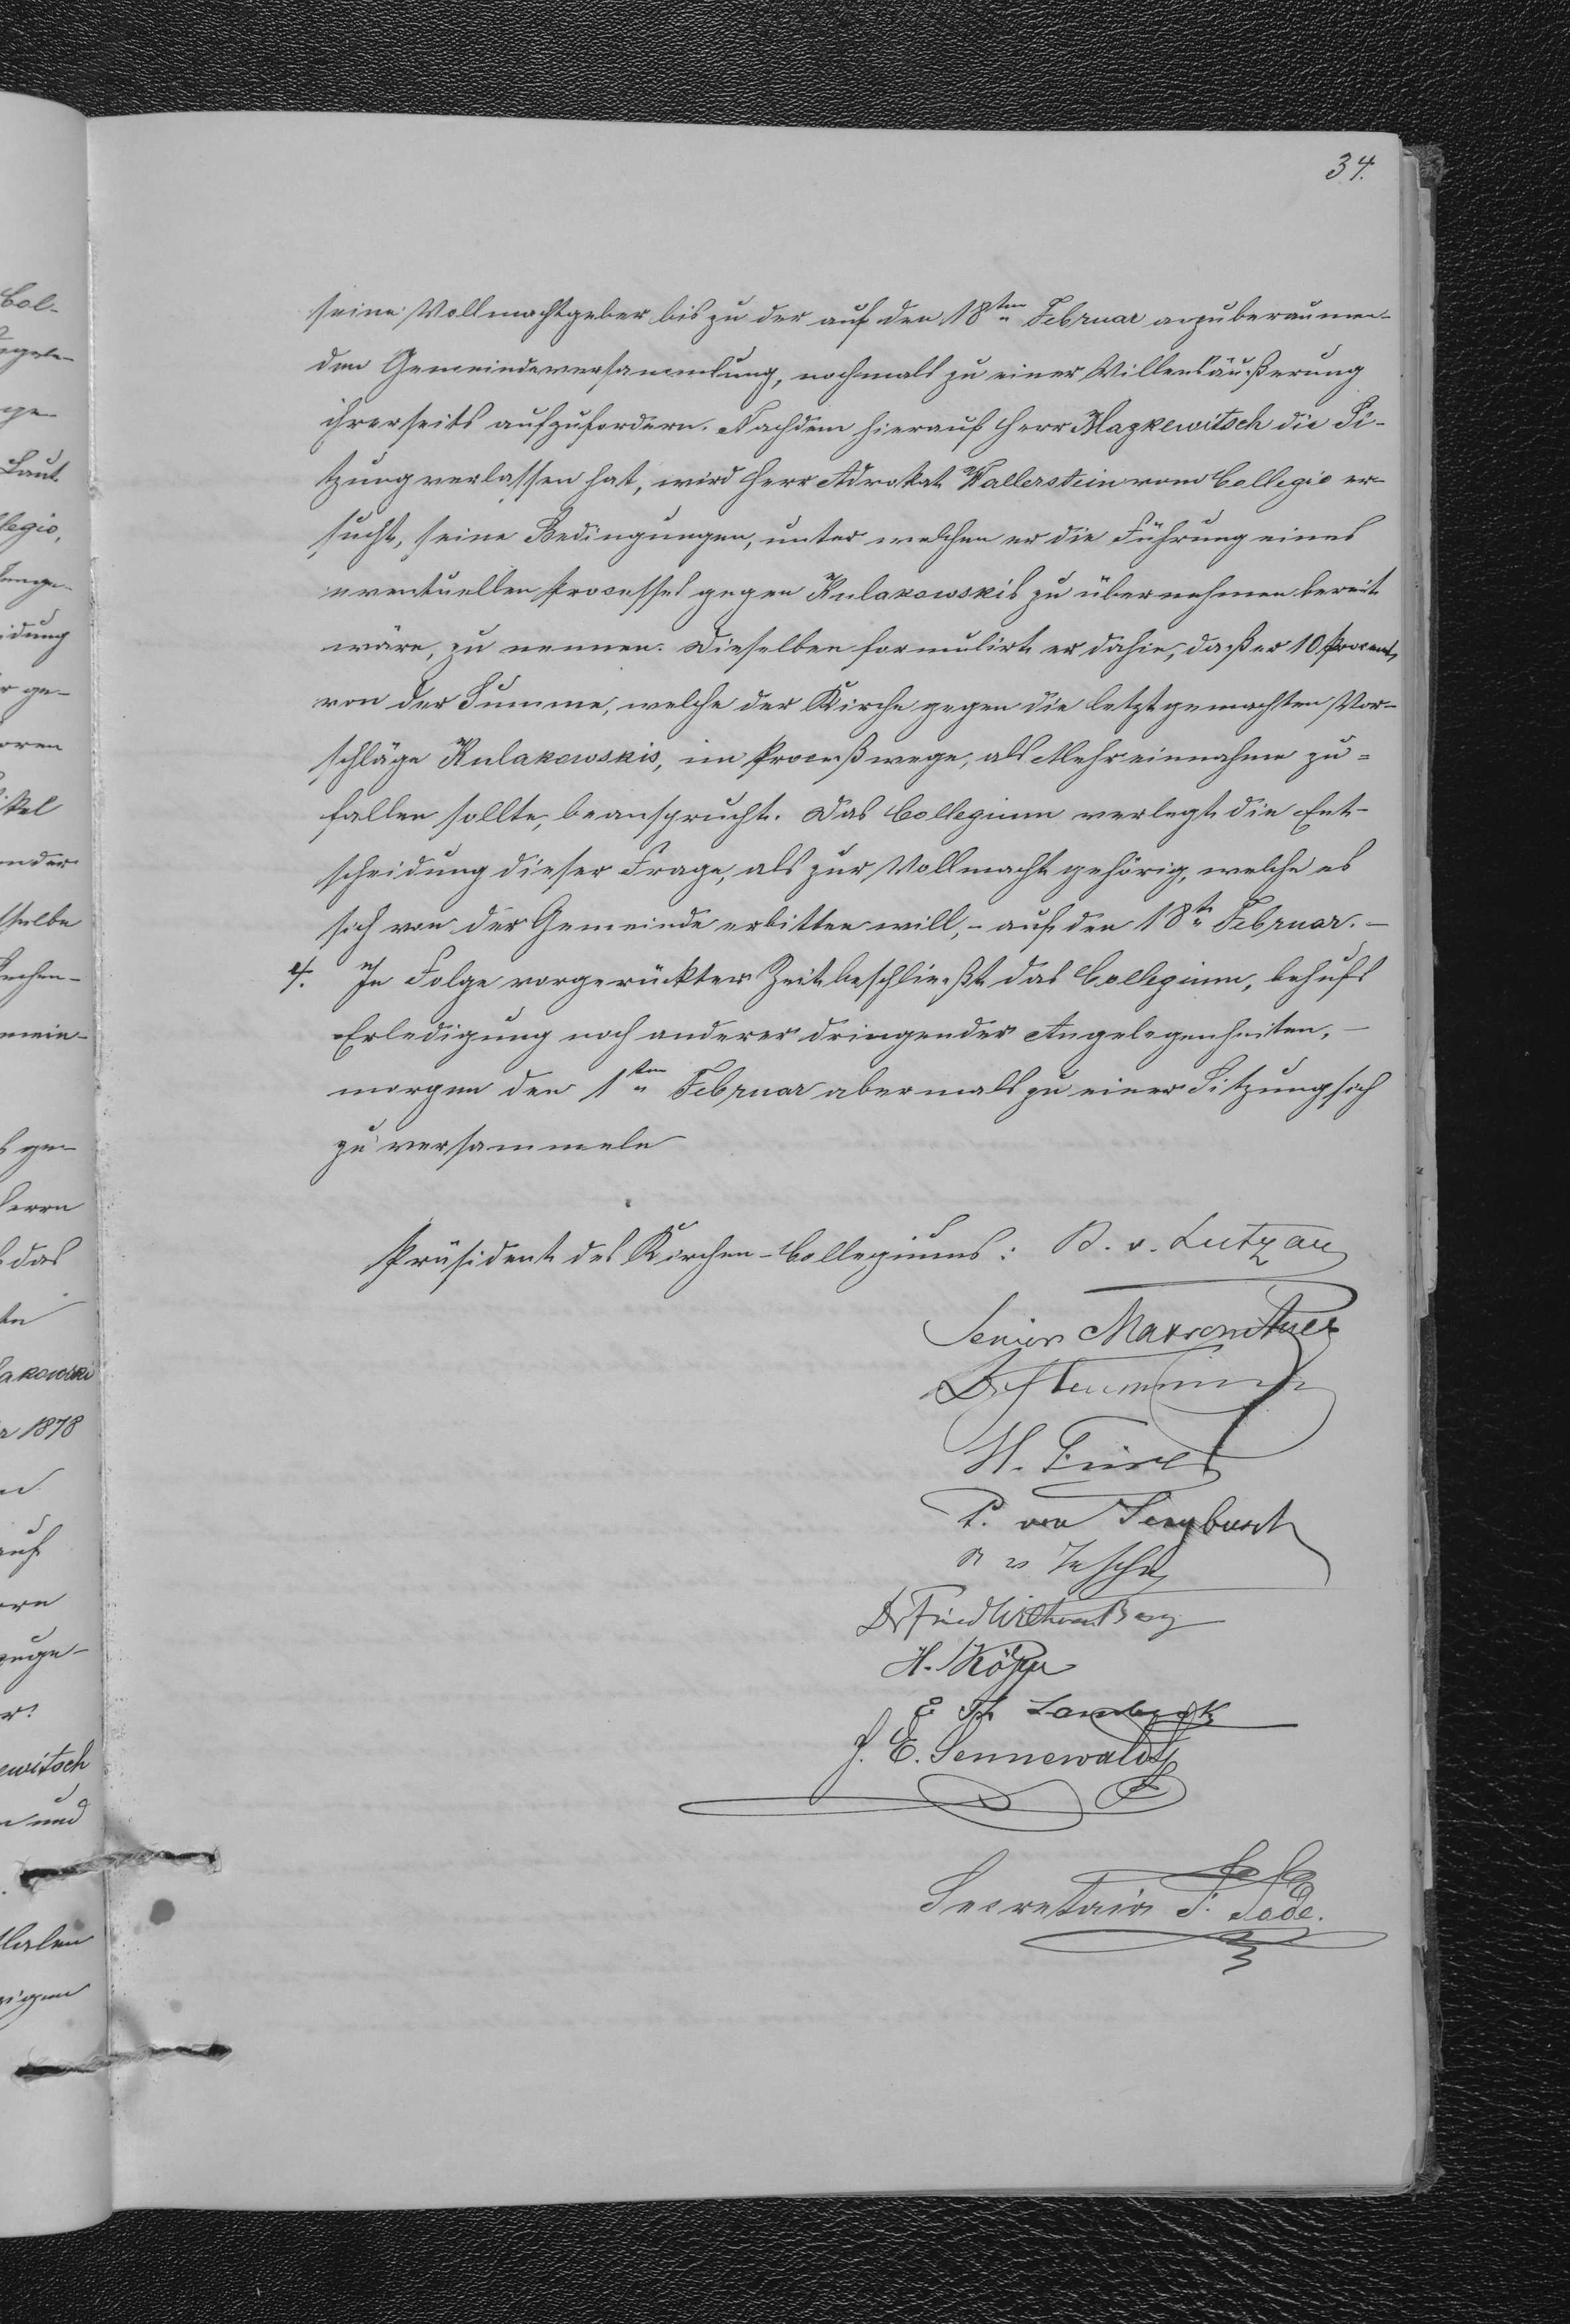 34.
seine Vollmachtgeber bis zu der auf den 18ten Februar anzuberaumen-
den Gemeindeversammlung, nochmals zu einer Willensäußerung
ihrerseits aufzufordern. Nachdem hierauf Herr Mazkewitsch die Si-
tzung verlassen hat, wird Herr Advokat Wallerstein vom Collegio er-
sucht, seine Bedingungen, unter welchen er die Führung eines
eventuellen Processes gegen Kulakowskis zu übernehmen bereit
wäre, zu nennen. Dieselben formulirt er dahin, daß er 10 Procent,
von der Summe, welche der Kirche gegen die letztgemachten Vor-
schläge Kulakowskis, im Proceßwege, als Mehreinnahme zu-
fallen sollte, beansprucht. Das Collegium verlegt die Ent-
scheidung dieser Frage, als zur Vollmacht gehörig, welche es
sich von der Gemeinde erbitten will, - auf den 18t. Februar. -
4. In Folge vorgerückter Zeit beschließt das Collegium, behufs
Erledigung noch anderer dringender Angelegenheiten, -
morgen den 1ten Februar abermals zu einer Sitzung sich
zu versammeln
Präsident des Kirchen-Collegiums: B. v. Lutzau
Senior
H.
P. von Sengbusch
Dr Fried
H. Köpp
E Th
J. E. Sennewaldt
Secretair T. Tode.
Col-
ge-
Laut
legio,
idung
r ge-
oren
ikel
nder
sselbe
mein-
s ge-
Herrn
das
akowski
r 1878
auf
ewitsch
n und